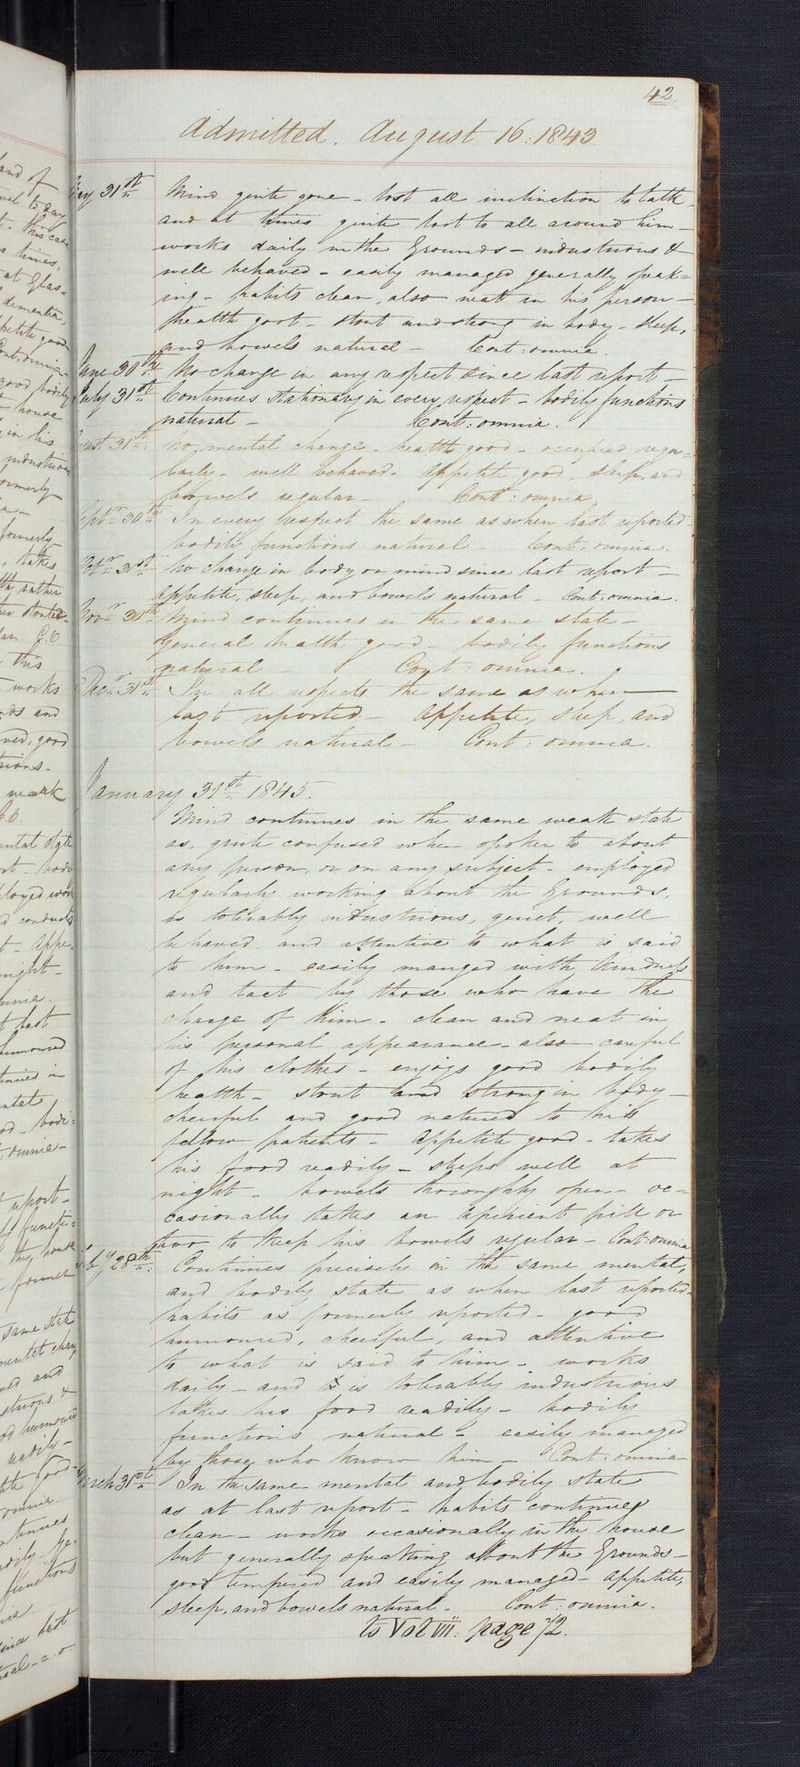 42.
Admitted. August 16: 1843
May 31st Mind quite gone - lost all inclination to talk,
and at times quite lost to all around him -
works daily in the Grounds - industrious &
well behaved - easily managed generally speak=
ing - habits clean, also neat in his person -
Health good - stout and strong in body - sleep,
and bowels natural - Cont: omnia.
June 30th No change in any respect since last report -
July 31st Continues stationary in every respect - bodily functions
natural - Cont: omnia.
August 31st: No mental change - health good - occupied regu=
larly - well behaved. Appetite good, sleep, and
bowels regular - Cont: omnia
Septr 30th In every respect the same as when last reported -
bodily functions natural - Cont: omnia.
Octr 31st No change in body or mind since last report -
appetite, sleep, and bowels natural - Cont: omnia.
Novr 30th Mind continues in the same state -
General health good - bodily functions
natural Cont: omnia.
Decr 31st In all respects the same as when
last reported - Appetite, sleep, and
bowels natural - Cont: omnia.
January 31st 1845.
Mind continues in the same weak state
as, quite confused when spoken to about
any person, or on any subject - employed
regularly working about the Grounds,
is tolerably industrious, quiet, well
behaved, and attentive to what is said
to him - easily manged with kindness
and tact by those who have the
charge of him - clean and neat in
his personal appearance - also careful
of his clothes - enjoys good bodily
health - stout and strong in body -
cheerful and good natured to his
fellow patients - Appetite good - takes
his food readily - sleeps well at
night - bowels thoroughly open - oc=
casionally takes an aperient pill or
two to keep his bowels regular - Cont: omnia
Feby 28th: Continues precisely in the same mental,
and bodily state as when last reported -
habits as formerly reported - good
humoured, cheerful, and attentive
to what is said to him - works
daily - and is tolerably industrious
takes his food readily - bodily
functions natural - easily managed
by those who know him - Cont: omnia
March 31st In the same mental and bodily state
as at last report - habits continues
clean - works occasionally in the house
but generally speaking about the Grounds -
good tempered and easily managed - appetite,
sleep, and bowels natural - Cont: omnia.
to Vol VII: page 72.